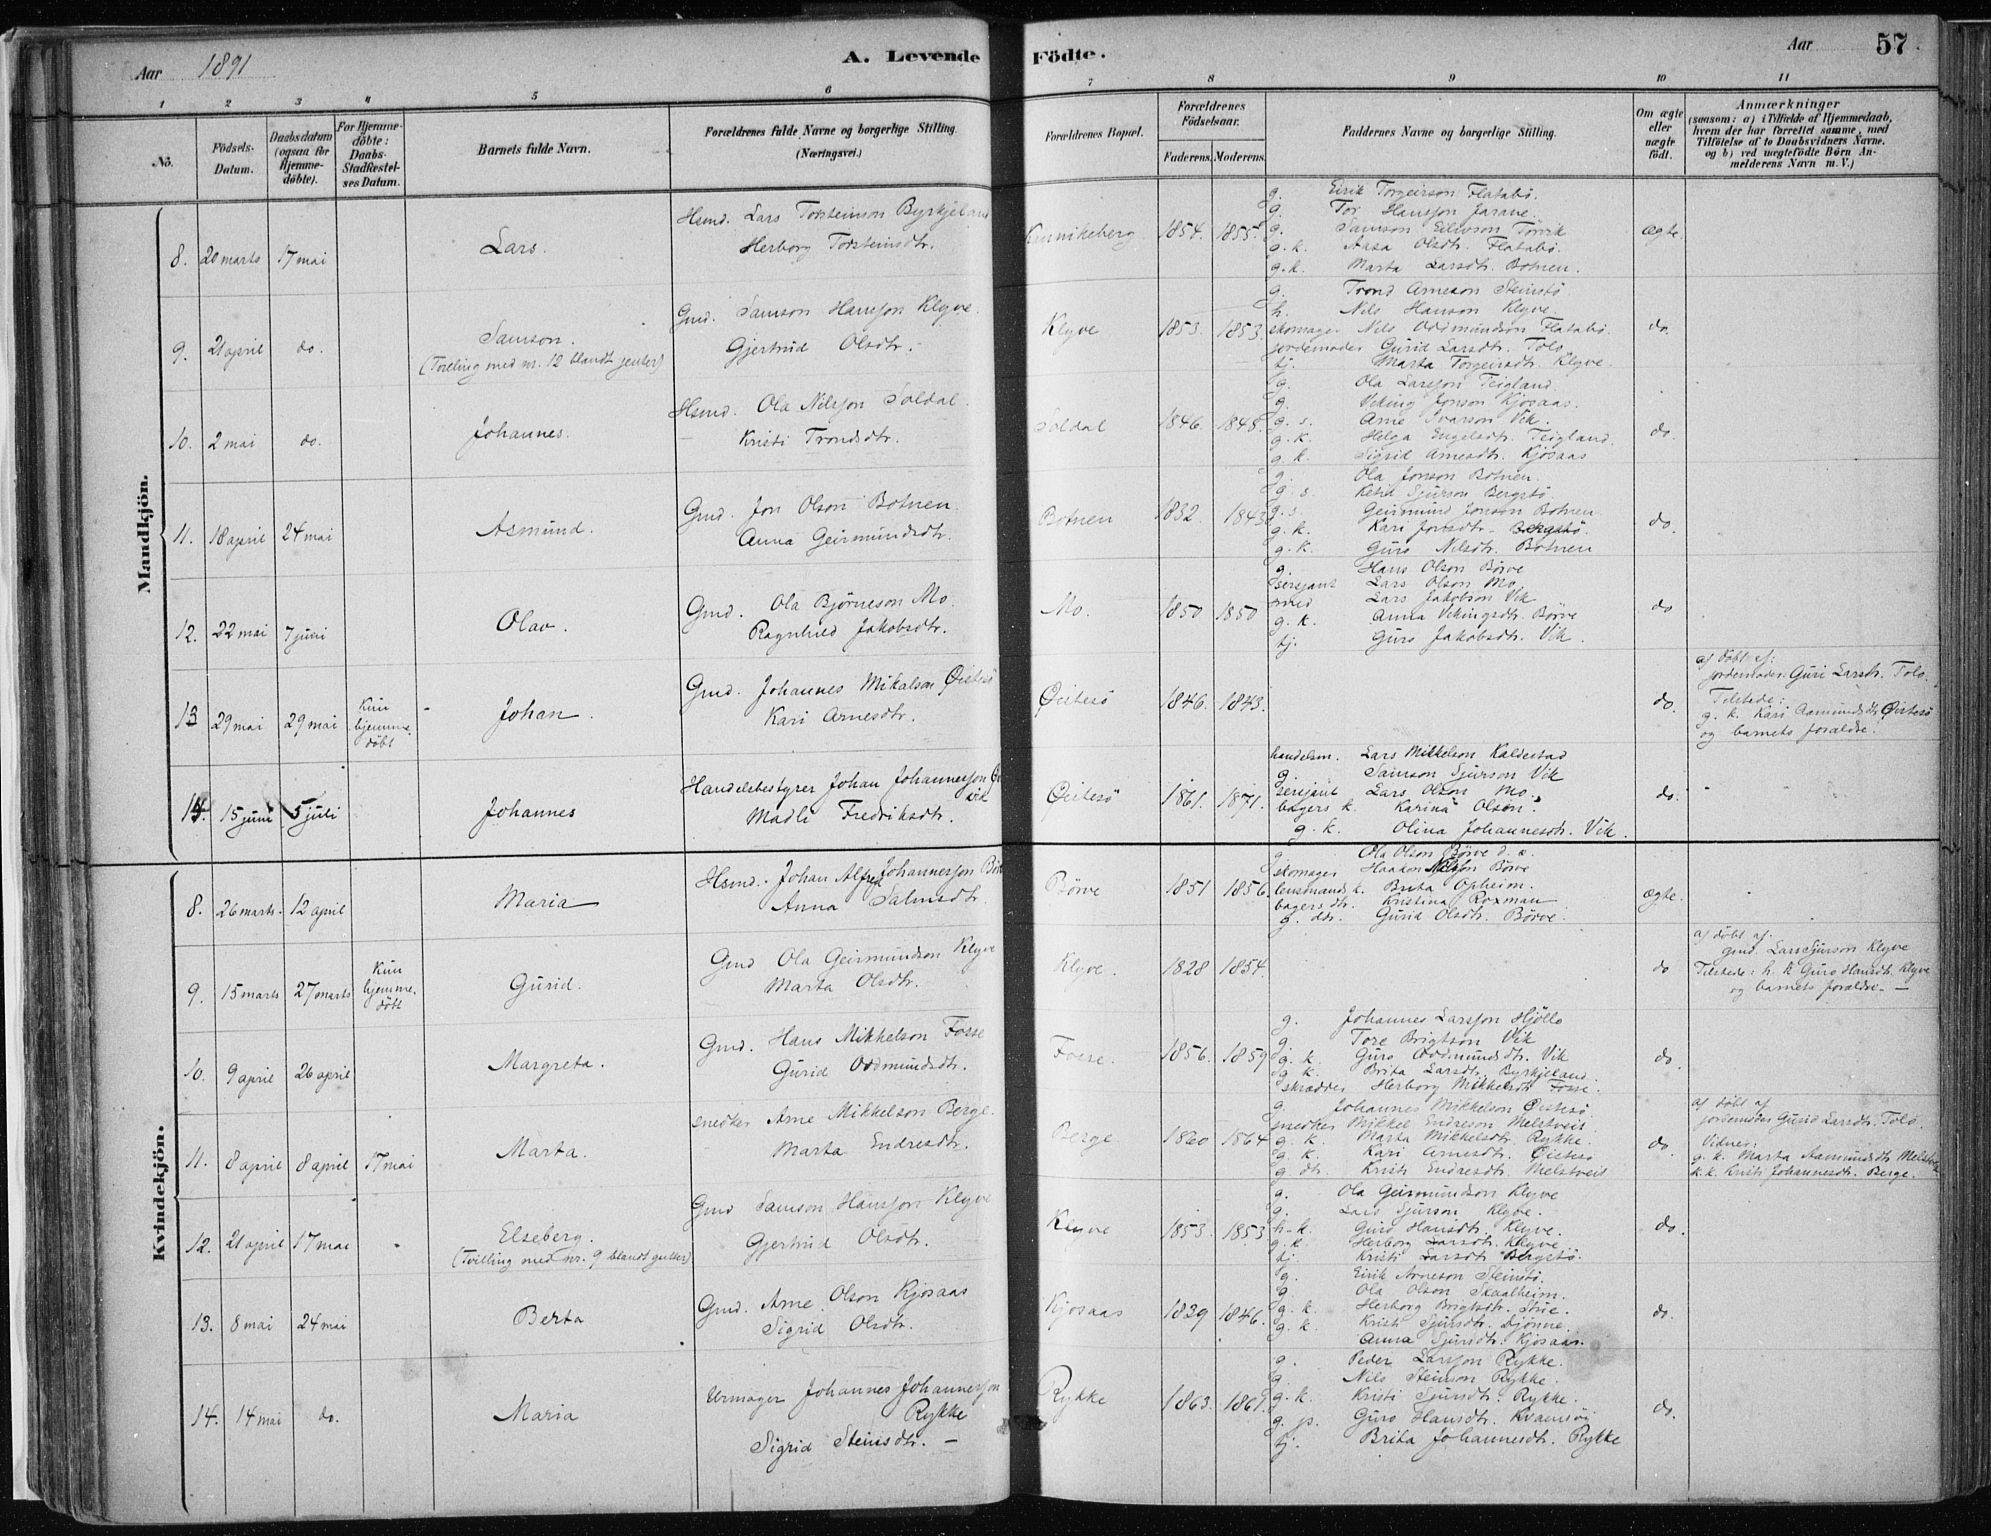 Aar 1891
A. Levende Födte.
Aar
57
1 2 3 4 5 6 7 8 9 10 11
No.
Födsels-Datum.
Daabsdatum (ogsaa for Hjemme-döbte).
For Hjemme-döbte: Daabs-Stadfæstel-ses Datum.
Barnets fulde Navn.
Forældrenes fulde Navne og borgerlige Stilling. (Næringsvei.)
Forældrenes Bopæl.
Forældrenes Födselsaar.
Faderens. Moderens.
Faddernes Navne og borgerlige Stilling.
Om ægte eller uægte født.
Anmærkninger
(saasom: a) i Tilfælde af Hjemmedaab,
hvem der har forrettet samme, med
Tilföielse af to Daabsvidners Navne.
og b) ved uægtefödte Börn An-
melderens Navn m. V.)
Mandkjön.
8. 20 marts 17 mai
Lars.
Hsmd. Lars Torsteinson Byrkjeland
Herborg Torsteinsdtr.
1854. 1855.
g. Eirik Torgeirson Flatabø.
g. Tor Hansson Jarane.
g. Samson Eilivson Tørvik
g. k. Aasa Olsdtr. Flatabø.
g. k. Marta Larsdtr. Botnen.
ægte.
9. 21 april do.
Samson.
(Tvelling med nr. 12 blandt jenter)
Gmd. Samson Hansson Klyve.
Gjertrud Olsdtr.
Klyve
1853. 1853.
g. Trond Arneson Steinstø
h. Nils Hanson Klyve.
skomager Nils Oddmundson Flatabø.
jordemoder Gurid Larsdtr. Tolo
tj. Marta Torgeirsdtr. Klyve.
do.
10. 2 mai do.
Johannes.
Hsmd. Ola Nilsson Soldal.
Kristi Trondsdtr.
Soldal
1846. 1848.
g. Ola Larsson Teigland.
g. Viking Jonson Kjosaas.
g. s. Arne Ivarson Vik.
g. k. Helga Engelsdtr. Teigland.
g. k. Sigrid Arnesdtr. Kjosaas
do.
11. 18 april 24 mai
Asmund.
Gmd. Jon Olson Botnen.
Anna Geirmundsdtr.
Botnen
1832. 1843.
g. Ola Jonson Botnen.
g. s. Ketil Sjurson Bergstø
g. s. Geirmund Jonson Botnen
g. k. Kari Jonsdtr. Bergstø
g. k. Guro Nilsdtr. Botnen
do.
12. 22 mai 7 juni
Olav.
Gmd. Ola Bjørneson Mo.
Ragnhild Jakobsdtr.
Mo.
1850 1850
g. Hans Olson Børve
sersjant Lars Olson Mo
smed Lars Jakobson Vik
g. k. Anna Vikingsdtr. Børve
tj. Guro Jakobsdtr. Vik.
do
13 29 mai 29 mai Kun hjemme-døbt
Johan.
Gmd. Johannes Mikalson Øistesø
Kari Arnesdtr.
Øistesø
1846. 1843.
do.
a) døbt af:
jordemoder Guri Larsdtr. Tolo.
Tilstede:
g. k. Kari Aamundsdtr. Øistesø
og barnets forældre.
14. 15 juni 5 juli
Johannes
Handelsbestyrer Johan Johannesson
Madli Fredriksdtr.
Øistesø
1861. 1871.
handelsm. Lars Mikkelson Kaldestad
g. Samson Sjurson Vik
sersjant Lars Olson Mo.
bagers k. Karina Olson.
g. k. Olina Johannesdtr. Vik.
do.
Kvindekjön.
8. 26 marts. 12 april
Maria
Hsmd. Johan Alfred Johannesson
Anna
Børve
1851 1856.
g. Ola Olson Børve d. e.
skomager Haakon Nilsson Børve
lensmands k. Brita Opheim.
bagers dtr. Kristina Roxman
g. dtr. Gurid Olsdtr. Børve.
ægte.
9. 15 marts 27 marts Kun hjemme-døbt
Gurid.
Gmd Ola Geirmundson Klyve
Marta Olsdtr.
Klyve.
1828 1854.
do
a) døbt af:
gmd. Lars Sjurson Klyve
Tilstede: h. k Guro Hansdtr. Klyve
og barnets forældre. —
10. 9 april 26 april
Margreta.
Gmd. Hans Mikkelson Fosse
Gurid Oddmundsdtr.
Fosse.
1856. 1859
g. Johannes Larsson Hjøllo
g. Tore Brigtson Vik
g. k. Guro Oddmundsdtr. Vik
g k. Brita Larsdtr. Byrkjeland.
skrædder Herborg Mikkelsdtr. Fosse.
do.
11. 8 april 8 april 17 mai
Marta.
snedker Arne Mikkelson Berge.
Marta Endresdtr.
Berge
1860 1864
g. Johannes Mikkelson Øistesø
snedker Mikkel Endreson Melstveit
g. k. Marta Mikkelsdtr. Rykke.
g. k. Kari Arnesdtr. Øistesø
g dtr. Kristi Endresdtr. Melstveit
do.
a) døbt af
jordemoder Gurid Larsdtr. Tolo.
Vidner:
g. k. Marta Aamundsdtr. Melstveit
k. k. Kristi Johannesdtr. Berge.
12. 21 april 17 mai
Elseberg.
(Tvilling med nr. 9 blandt gutter)
Gmd Samson Hansson Klyve
Gjertrud Olsdtr.
Klyve
1853. 1853
g. Ola Geirmundson Klyve
g. Lars Sjurson Klyve.
h. k. Guro Hansdtr. Klyve.
g. k Herborg Larsdtr. Klyve
tj. Kristi Larsdtr. Bergstø.
do.
13. 8 mai 24 mai
Berta
Gmd. Arne Olson Kjosaas
Sigrid Olsdtr.
Kjosaas
1839 1846.
g. Eirik Arneson Steinstø.
g. Ola Olson Skaalheim.
g. k. Herborg Brigtsdtr. Stue.
g. k. Kristi Sjursdtr. Djønne.
Anna Sjursdtr. Kjosaas.
do.
14. 14 mai do.
Maria
Urmager Johannes Johannesson
Rykke
Sigrid Steinsdtr. —
Rykke
1863. 1861.
g. Peder Larsson Rykke.
g. Nils Steinson Rykke.
g. k. Kristi Sjursdtr. Rykke.
g. p. Guro Hansdtr. Kvamsøi
tj. Brita Johannesdtr. Rykke
do.